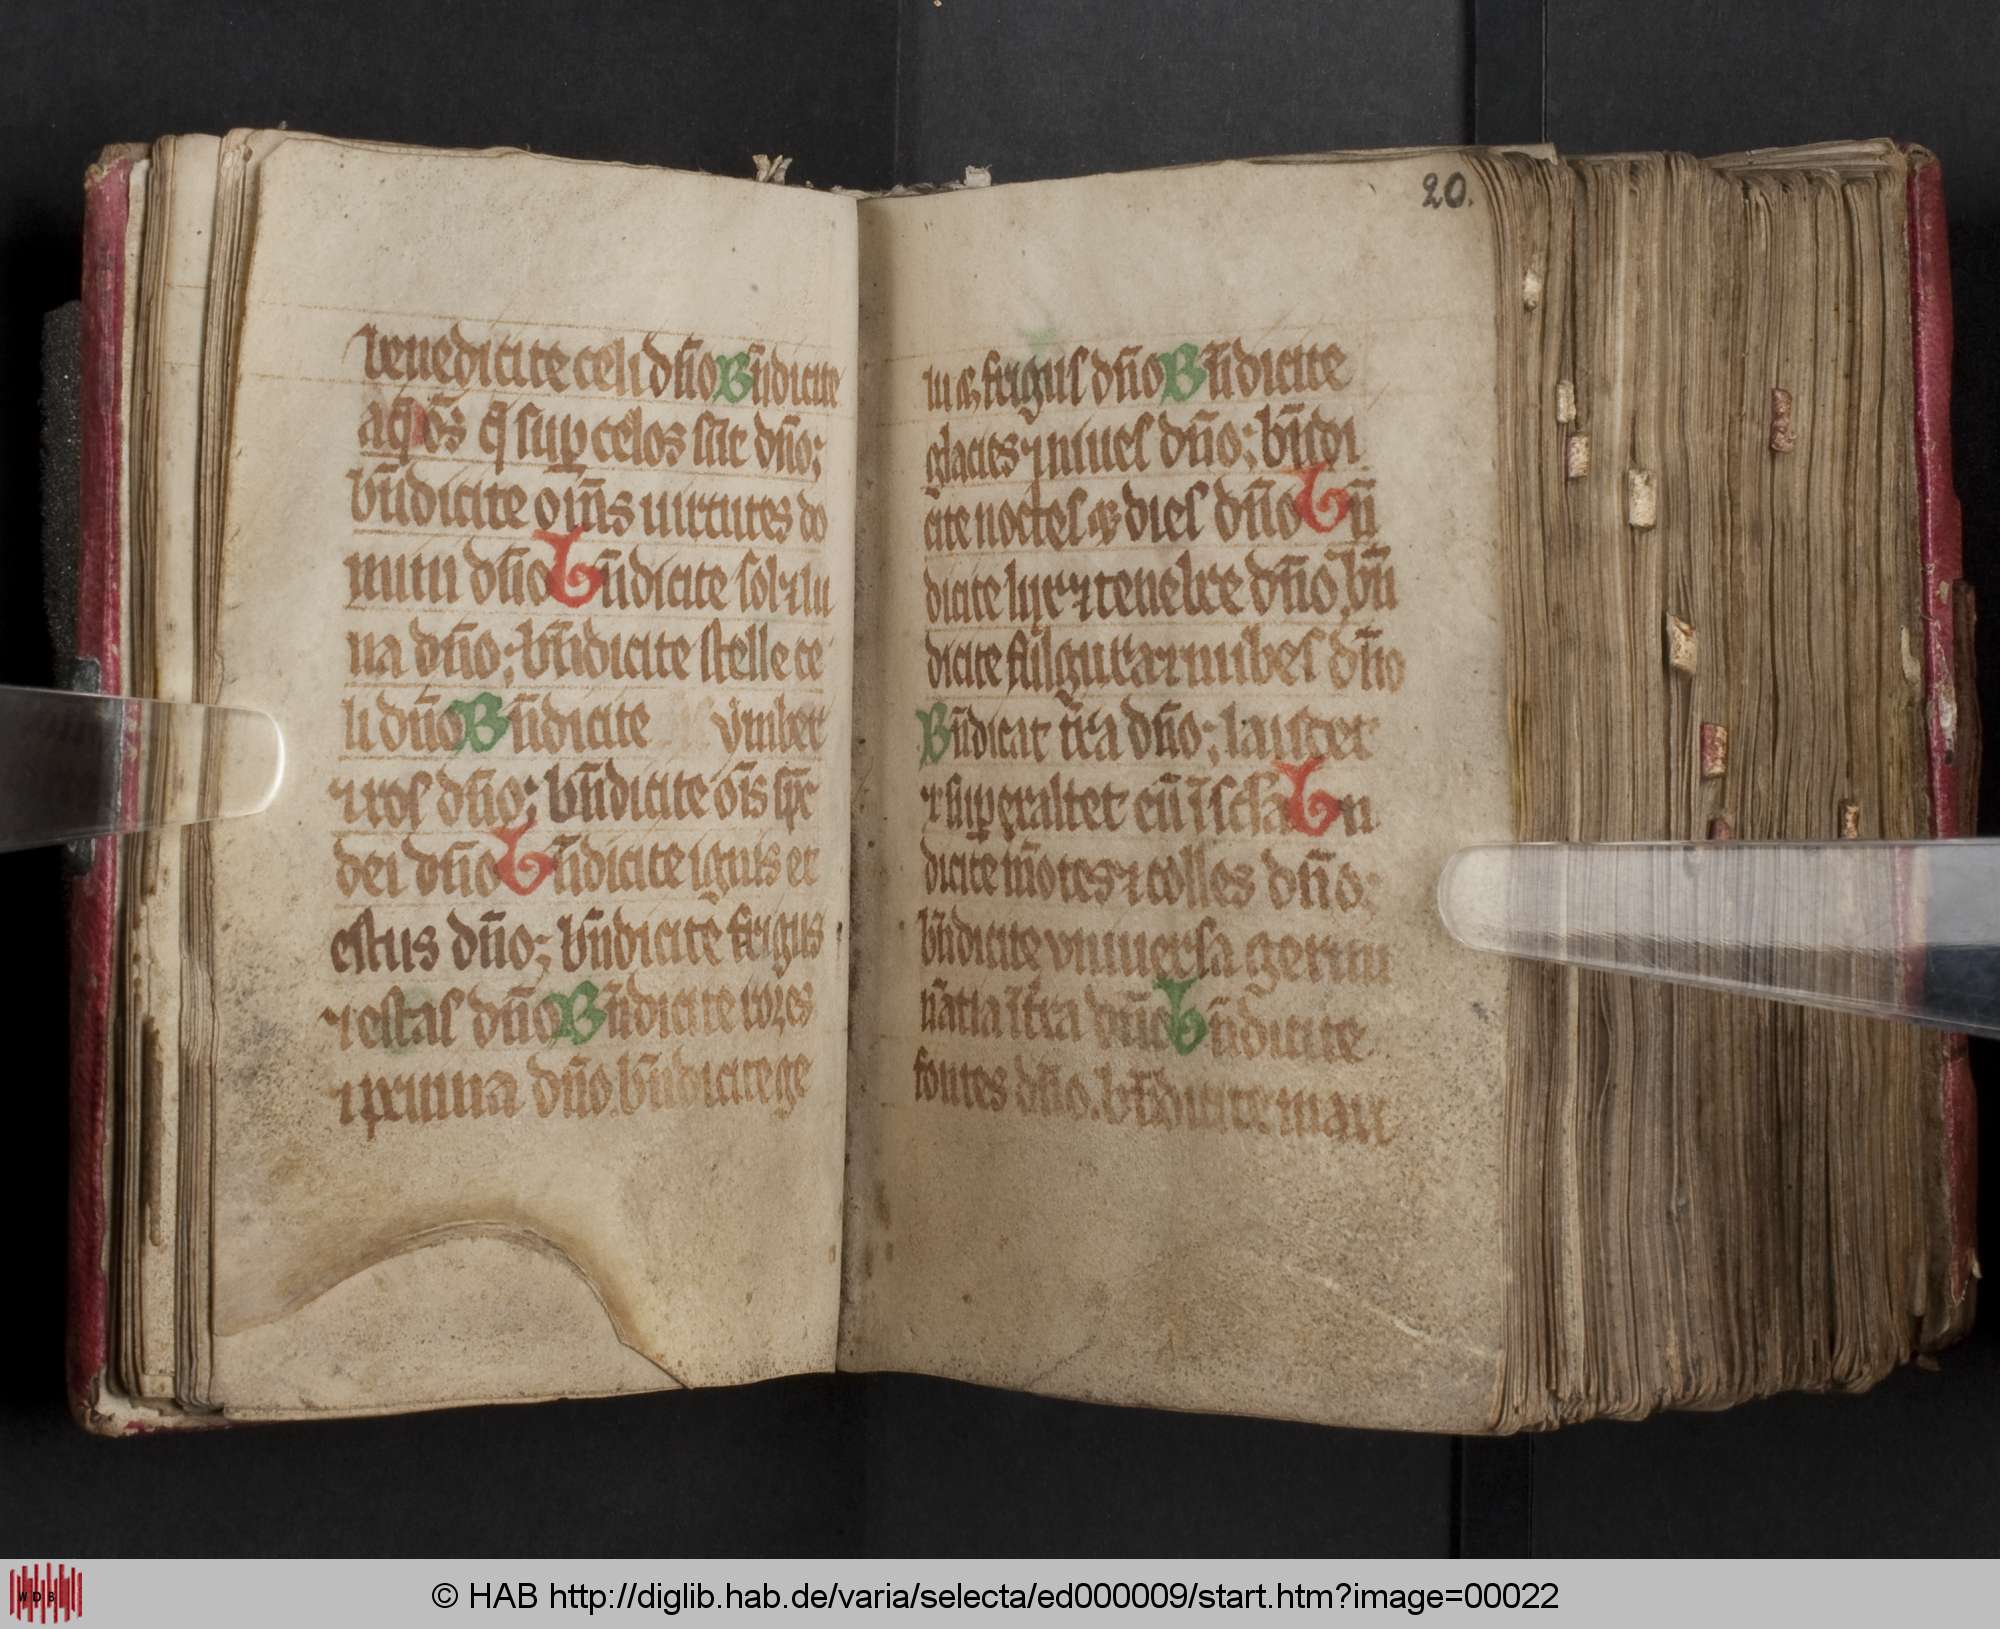 benedicite celi dn̄o Bn̄dicite
aq̄ om̄s q̄ sup celos sūt dn̄o;
bn̄dicite om̄s uirtutes do
mini dn̄o bn̄dicite sol ⁊ lu
na dn̄o; bn̄dicite stelle ce
li dn̄o Bn̄dicite ymber
⁊ ros dn̄o; bn̄dicite om̄s sp̄c
dei dn̄o bn̄dicite ignis et
estus dn̄o; bn̄dicite frigus
⁊ estas dn̄o Bn̄dicite rores
⁊ pruina dn̄o. bn̄dicite ge
20.
lu & frigus dn̄o Bn̄dicite
glacies ⁊ niues dn̄o; bn̄di
cite noctes & dies dn̄o bn̄
dicite lux ⁊ tenebre dn̄o bn̄
dicite fulgura ⁊ nubes dn̄o
Bn̄dicat tr̄a dn̄o; laudet
⁊ supexaltet eū ī scl̄a Bn
dicite mōtes ⁊ colles dn̄o;
bn̄dicite vniuersa germi
nātia ī tr̄a dn̄o bn̄dicite
fontes dn̄o. bn̄dicite mari
WDB
© HAB http://diglib.hab.de/varia/selecta/ed000009/start.htm?image=00022